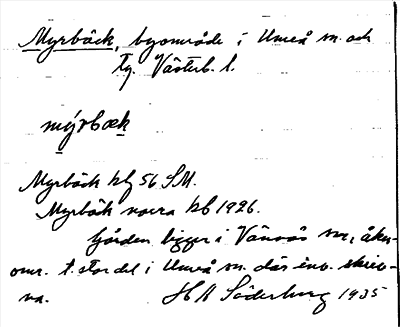 Myrbäck, byområde i Umeå sn. och
tg. Västerb. l.
mýrbæk
Myrbäck kg 56 SM.
Myrbäck norra kb 1926.
Gården ligger i Vännäs sn, åker-
omr. t. stor del i Umeå sn. där inv. skriv-
na. H A Söderberg 1935